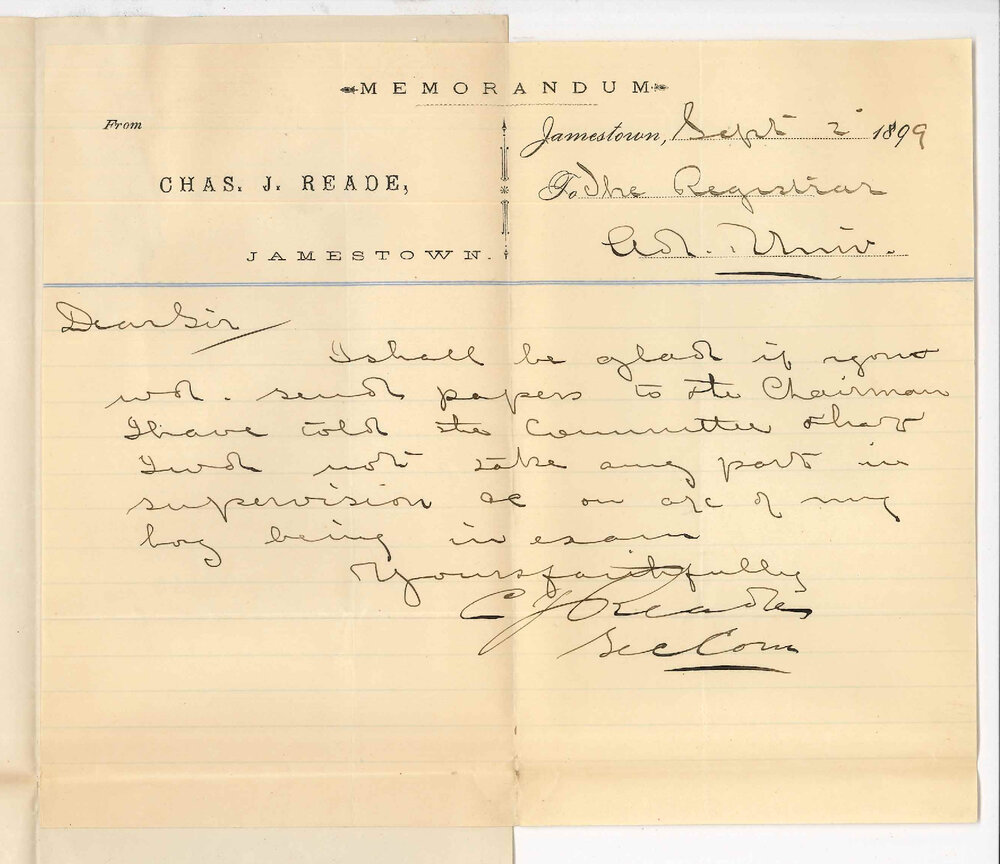 MEMORANDUM
From
Jamestown, Sept 2 1899
CHAS. J. READE,
To The Registrar
JAMESTOWN.
Ad. Univ.
Dear Sir
I shall be glad if you
wd. send papers to the Chairman
I have told the Committee that
I wd not take any part in
supervision &c on a/c of my
boy being in exam
Yours faithfully
C J Reade
Sec Com